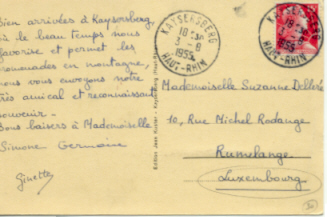 Bien arrivées à Kaysersberg,
où le beau temps nous
favorise et permet les
promenades en montagne,
nous vous envoyons notre
très amical et reconnaissant
souvenir.
Bons baisers à Mademoiselle
Simone Germaine
Ginette
KAYSERSBERG
18-30
3-8
1955
HAUT-RHIN
KAYSERSBERG
18-30
1955
HAUT-RHIN
Mademoiselle Suzanne
10, Rue Michel Rodange
Rumelange
Luxembourg